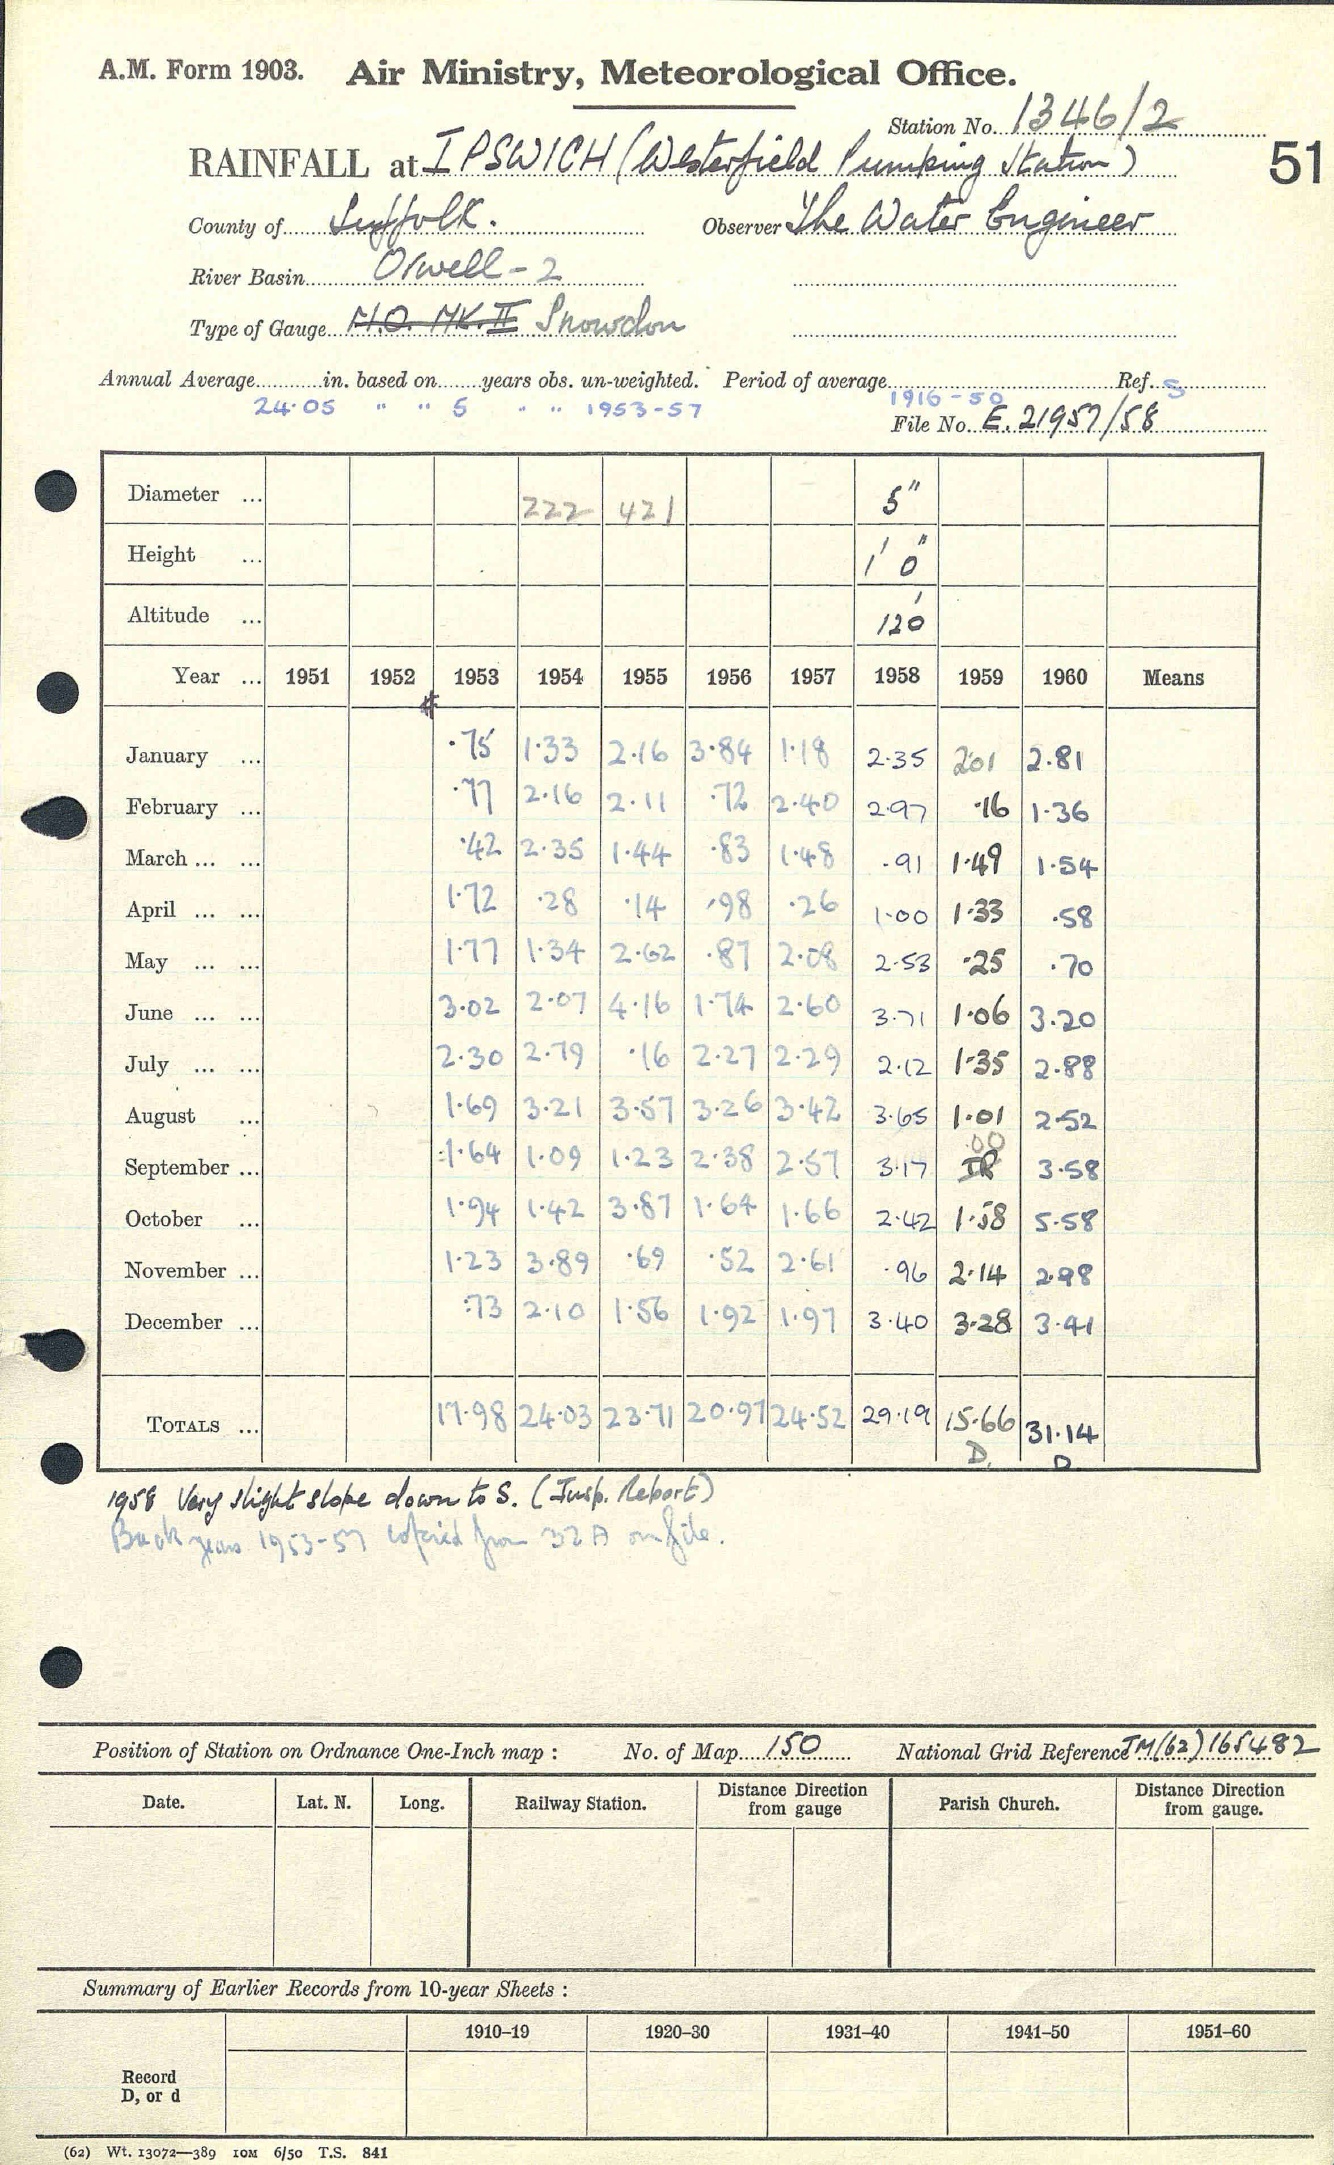 A.M. Form 1903. Air Ministry, Meteorological Office.
Station No. 1346/2
RAINFALL at IPSWICH (Westerfield Pumping Station)
51
County of Suffolk. Observer The Water Engineer
River Basin Orwell - 2
Type of Gauge M.O. MK. II Snowdon
Annual Average in. based on years obs. un-weighted. Period of average 1916-50 Ref. S
24.05 " " 5 " " 1953-57
File No. E.21957/58
Diameter ... 222 421 5"
Height ... 1' 0"
Altitude ... 120'
Year ... 1951 1952 1953 1954 1955 1956 1957 1958 1959 1960 Means
January ... .75 1.33 2.16 3.84 1.18 2.35 2.01 2.81
February ... .77 2.16 2.11 .72 2.40 2.97 .16 1.36
March ... ... .42 2.35 1.44 .83 1.48 .91 1.49 1.54
April ... ... 1.72 .28 .14 .98 .26 1.00 1.33 .58
May ... ... 1.77 1.34 2.62 .87 2.08 2.53 .25 .70
June ... ... 3.02 2.07 4.16 1.74 2.60 3.71 1.06 3.20
July ... ... 2.30 2.79 .16 2.27 2.29 2.12 1.35 2.88
August ... 1.69 3.21 3.57 3.26 3.42 3.65 1.01 2.52
.00
September ... 1.64 1.09 1.23 2.38 2.57 3.17 IR 3.58
October ... 1.94 1.42 3.87 1.64 1.66 2.42 1.58 5.58
November ... 1.23 3.89 .69 .52 2.61 .96 2.14 2.98
December ... .73 2.10 1.56 1.92 1.97 3.40 3.28 3.41
TOTALS ... 17.98 24.03 23.71 20.97 24.52 29.19 15.66 31.14
D. D
1958 Very slight slope down to S. (Insp. Report)
Back years 1953-57 copied from 32A on file.
Position of Station on Ordnance One-Inch map : No. of Map 150 National Grid Reference TM(62)165482
Date. Lat. N. Long. Railway Station. Distance Direction from gauge Parish Church. Distance Direction from gauge.
Summary of Earlier Records from 10-year Sheets :
1910–19 1920–30 1931–40 1941–50 1951–60
Record
D, or d
(62) Wt. 13072—389 10M 6/50 T.S. 841